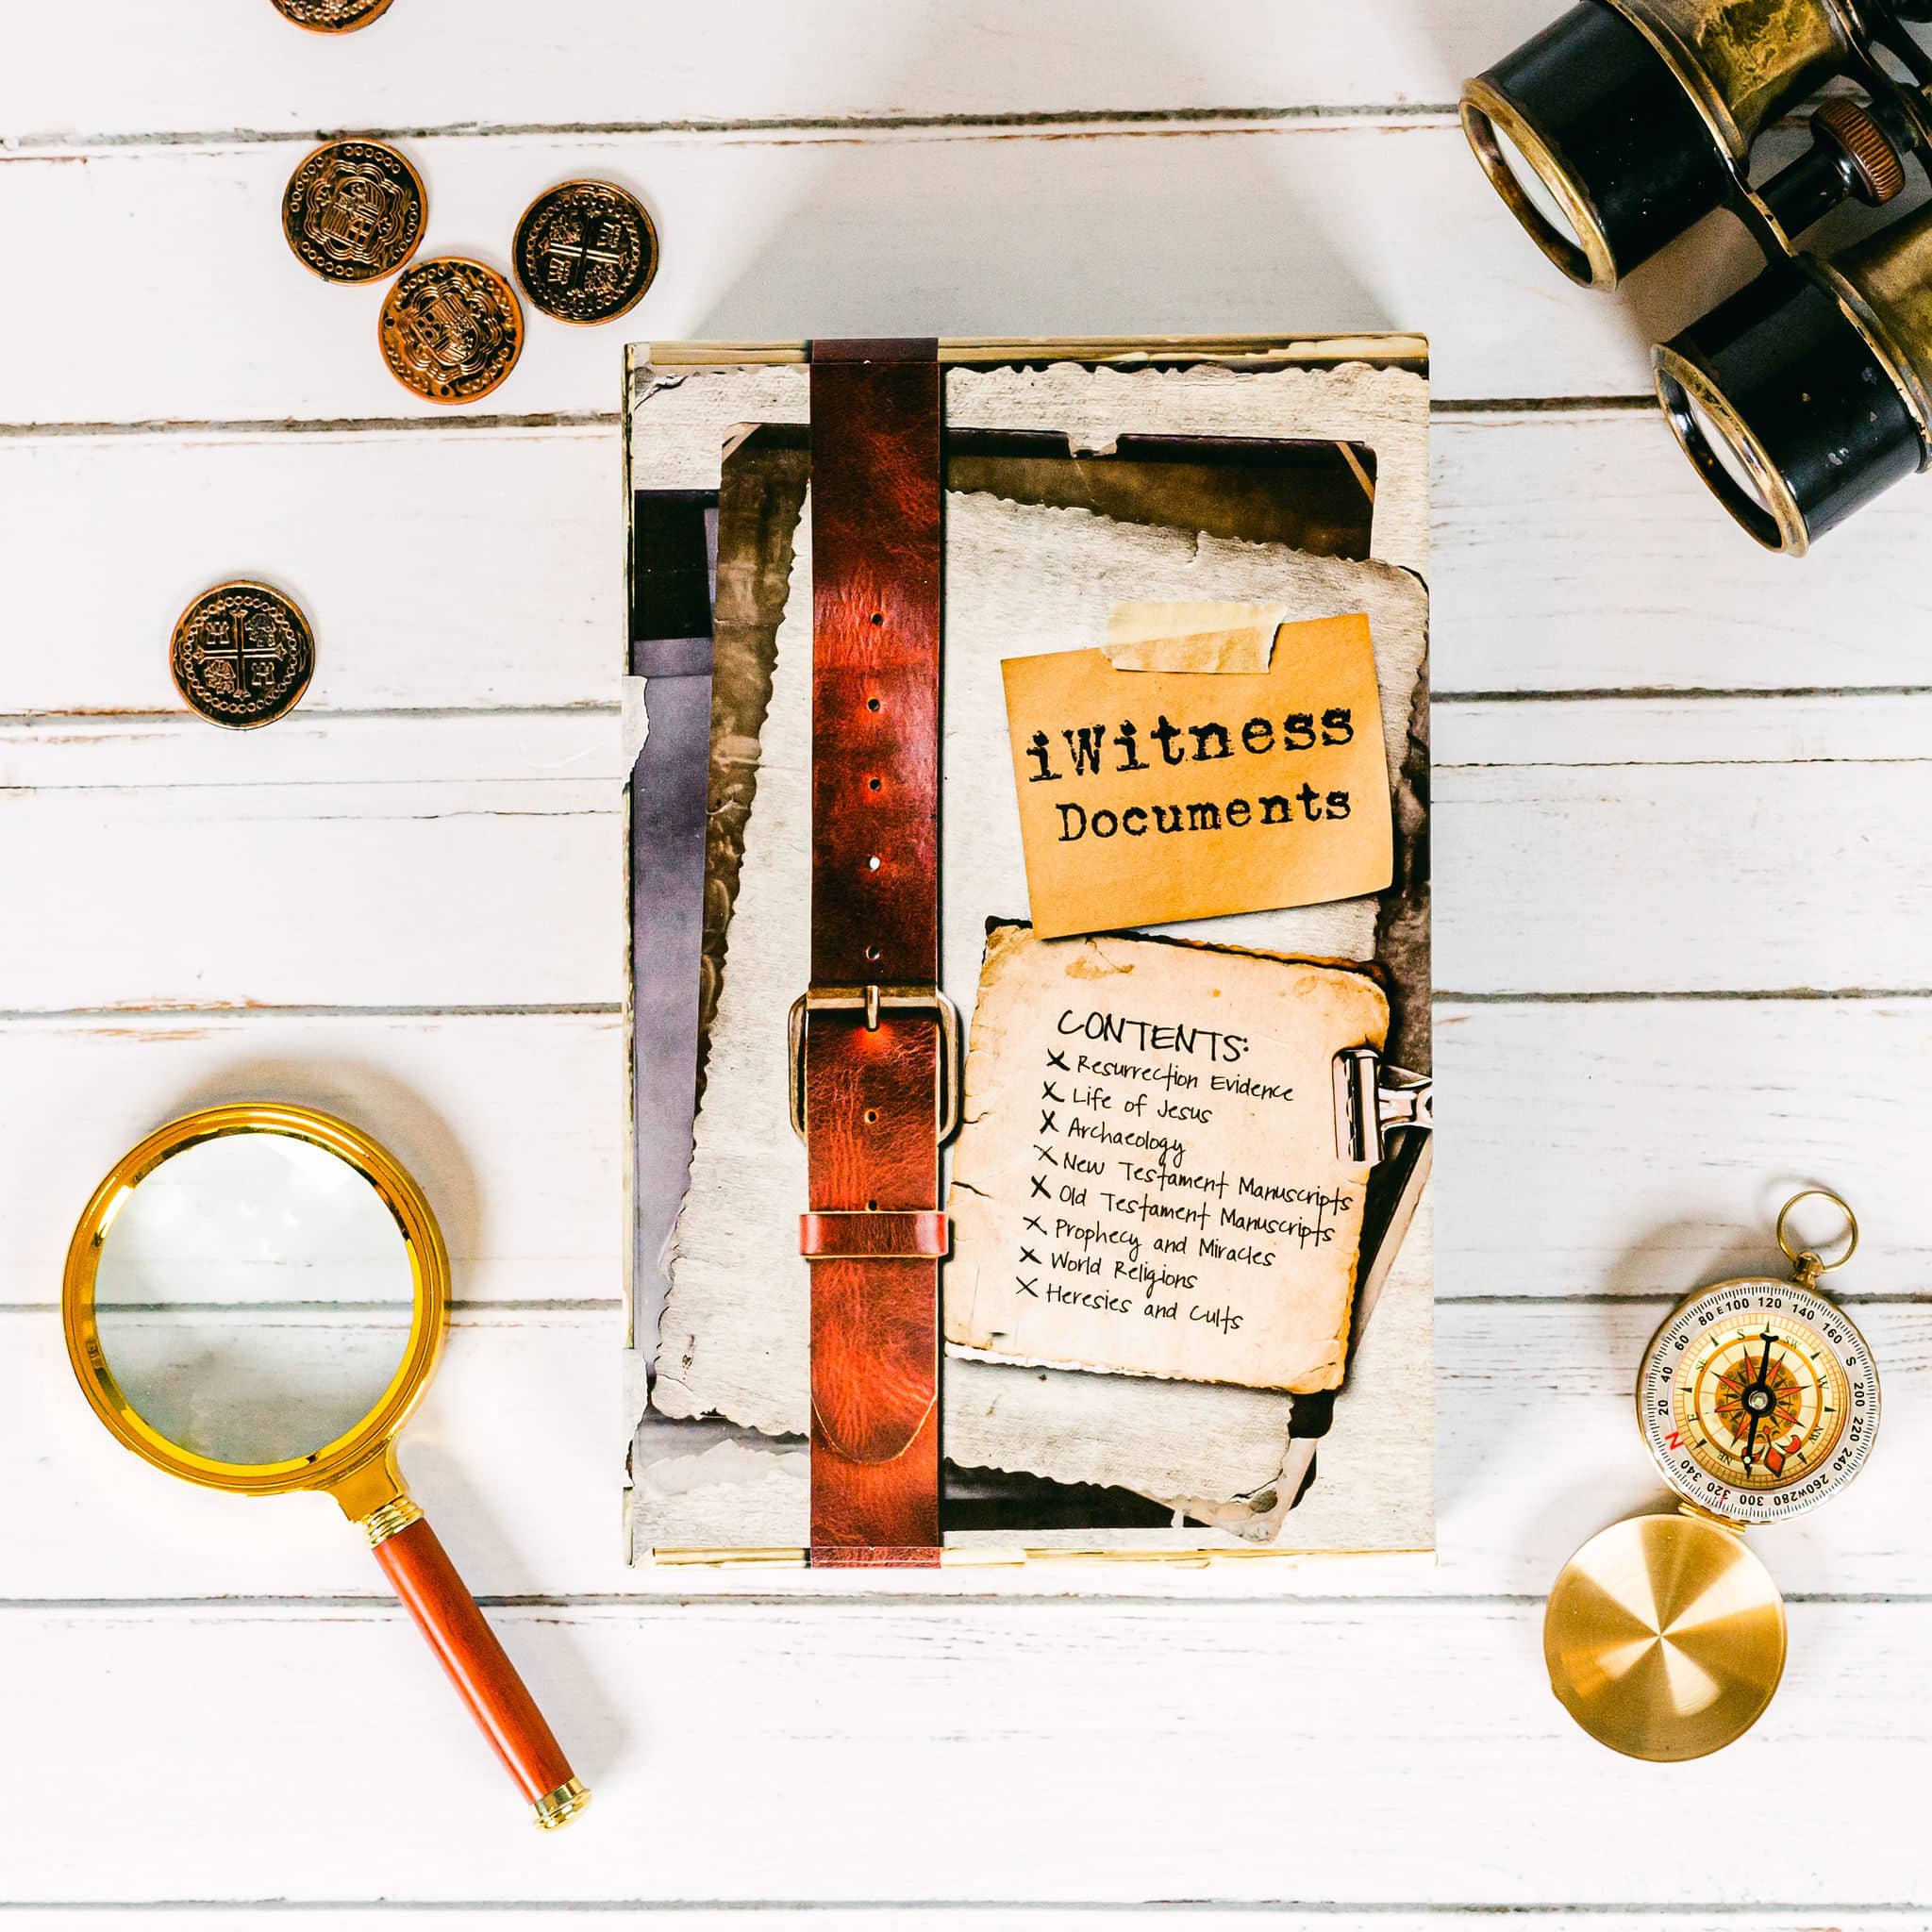 iWitness
Documents
CONTENTS:
X Resurrection Evidence
X Life of Jesus
X Archaeology
X New Testament Manuscripts
X Old Testament Manuscripts
X Prophecy and Miracles
X World Religions
X Heresies and Cults
20 40 60 80 E 100 120 140 160 S 200 220 240 260 W 280 300 320 340 N
S SW W NW NE E SE